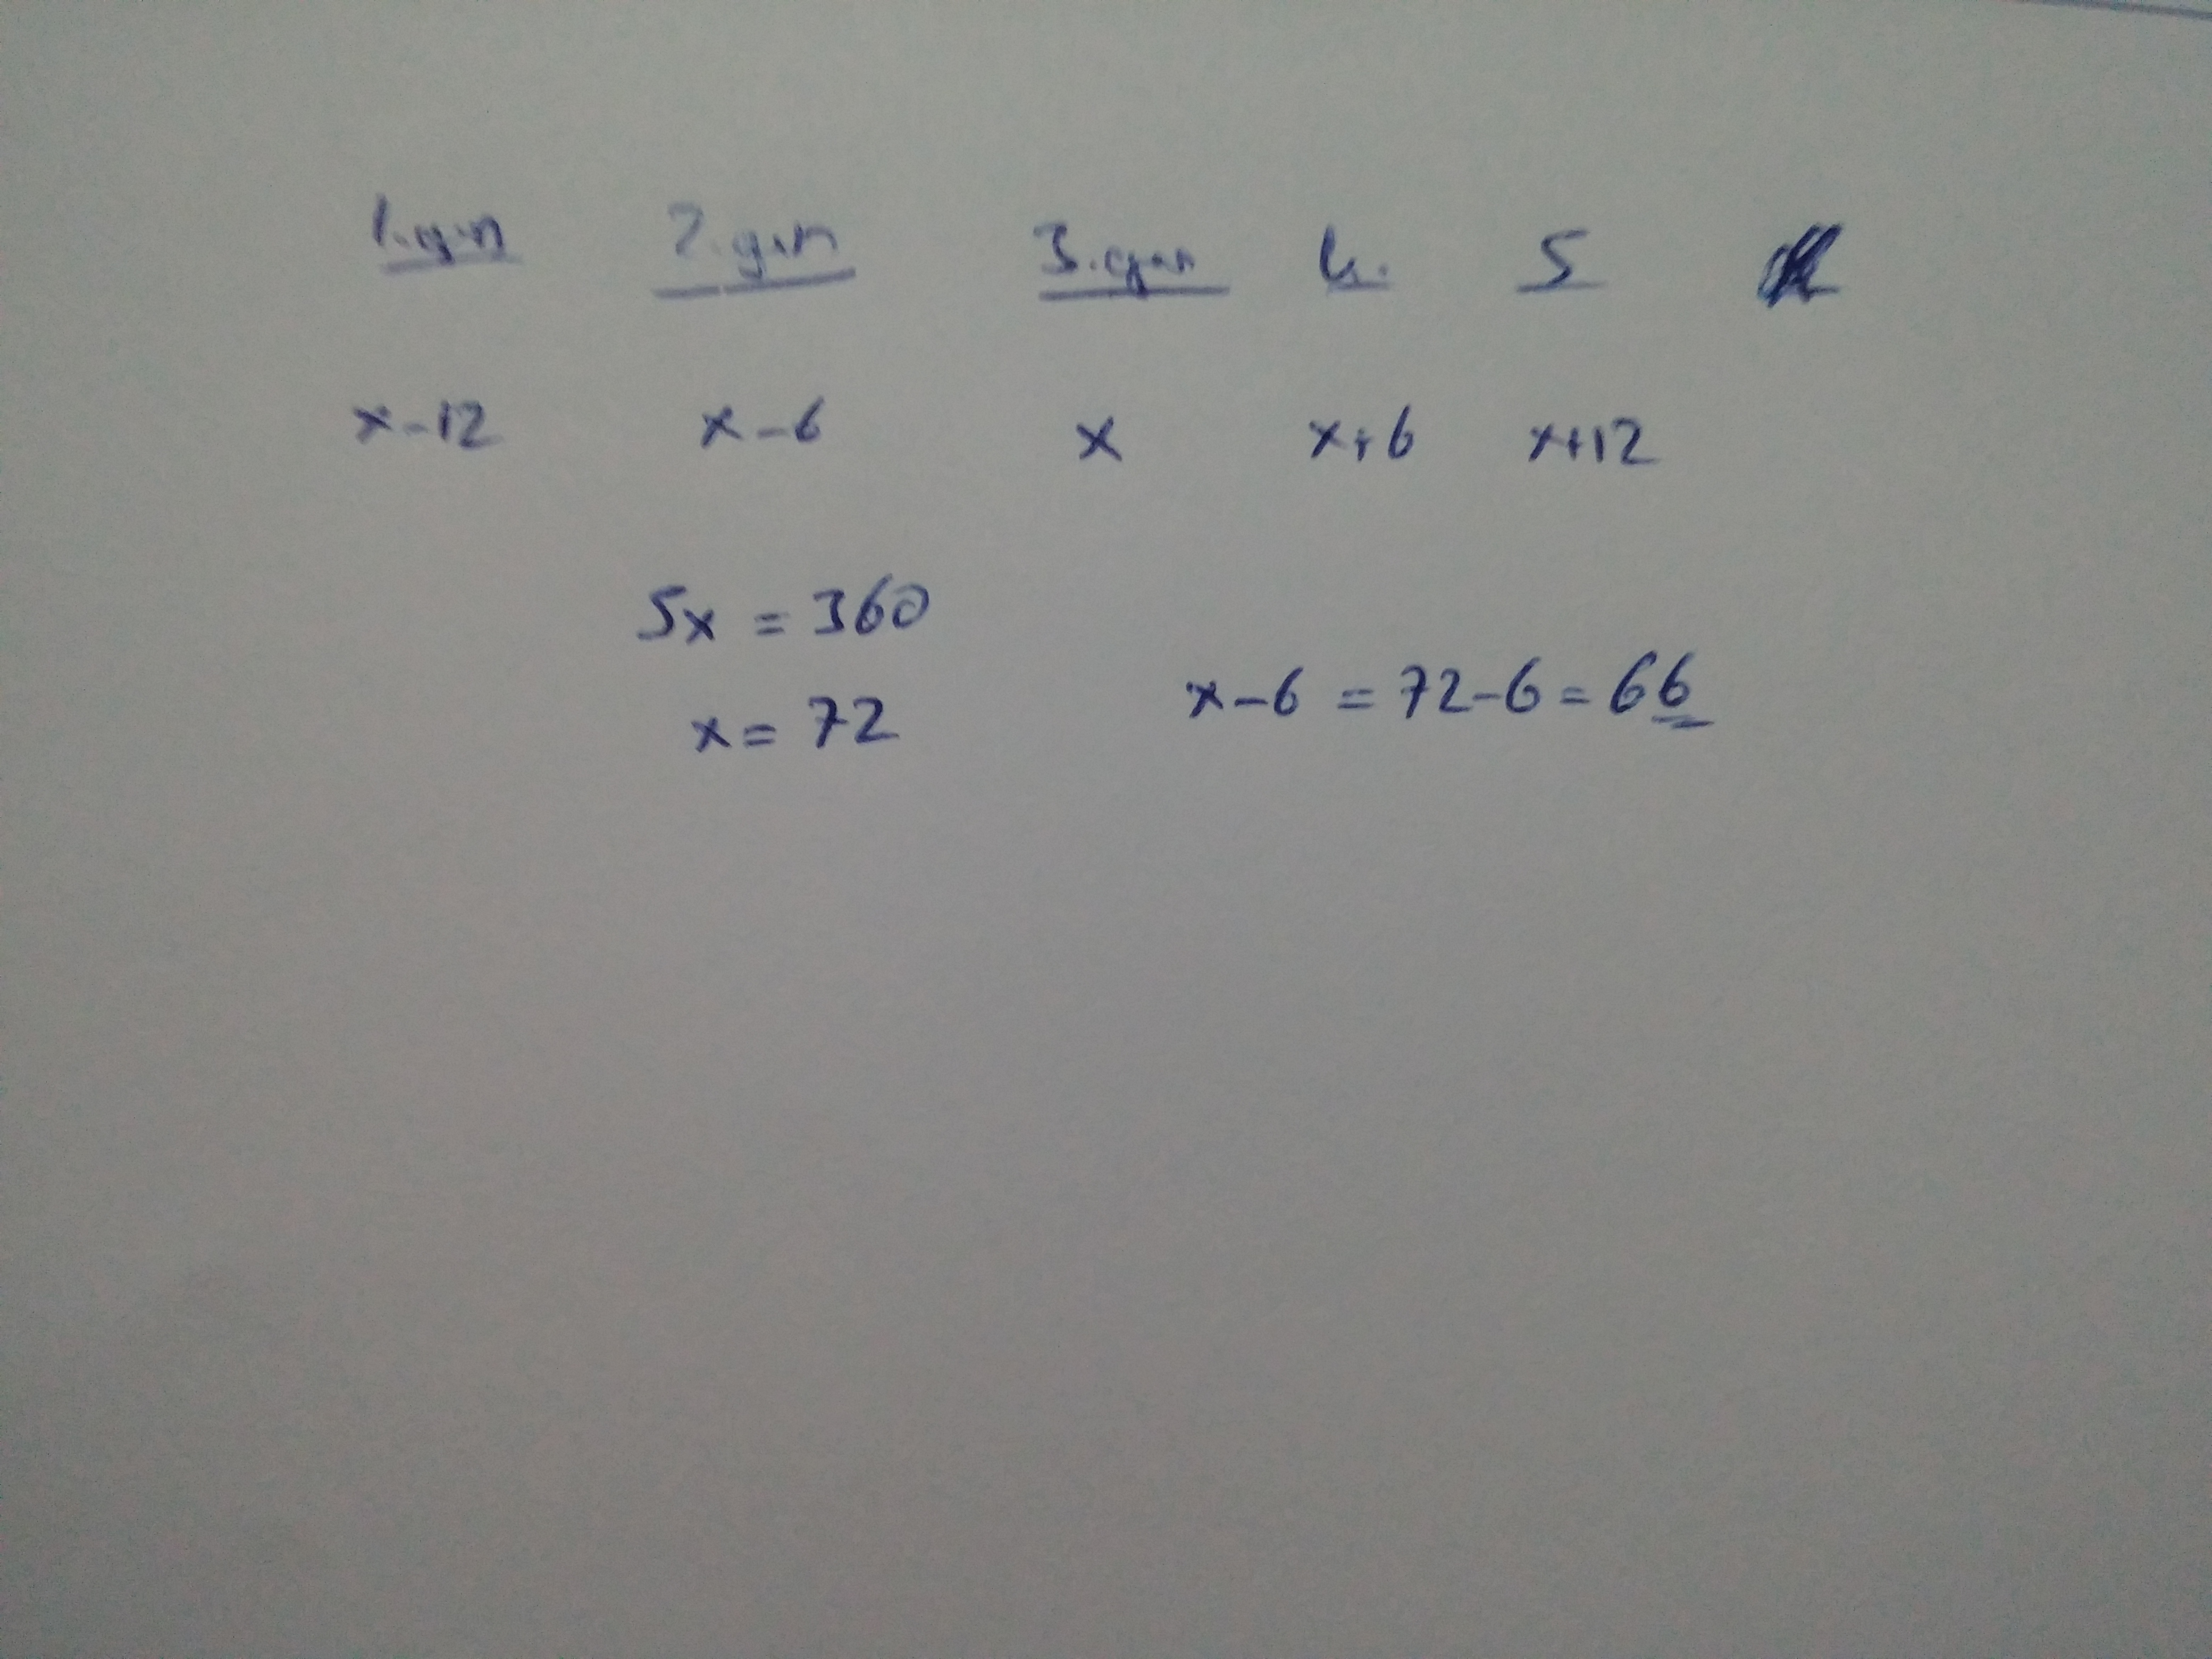 1.gün 2.gün 3.gün 4. 5
x-12 x-6 x x+6 x+12
5x = 360
x = 72
x-6 = 72-6 = 66